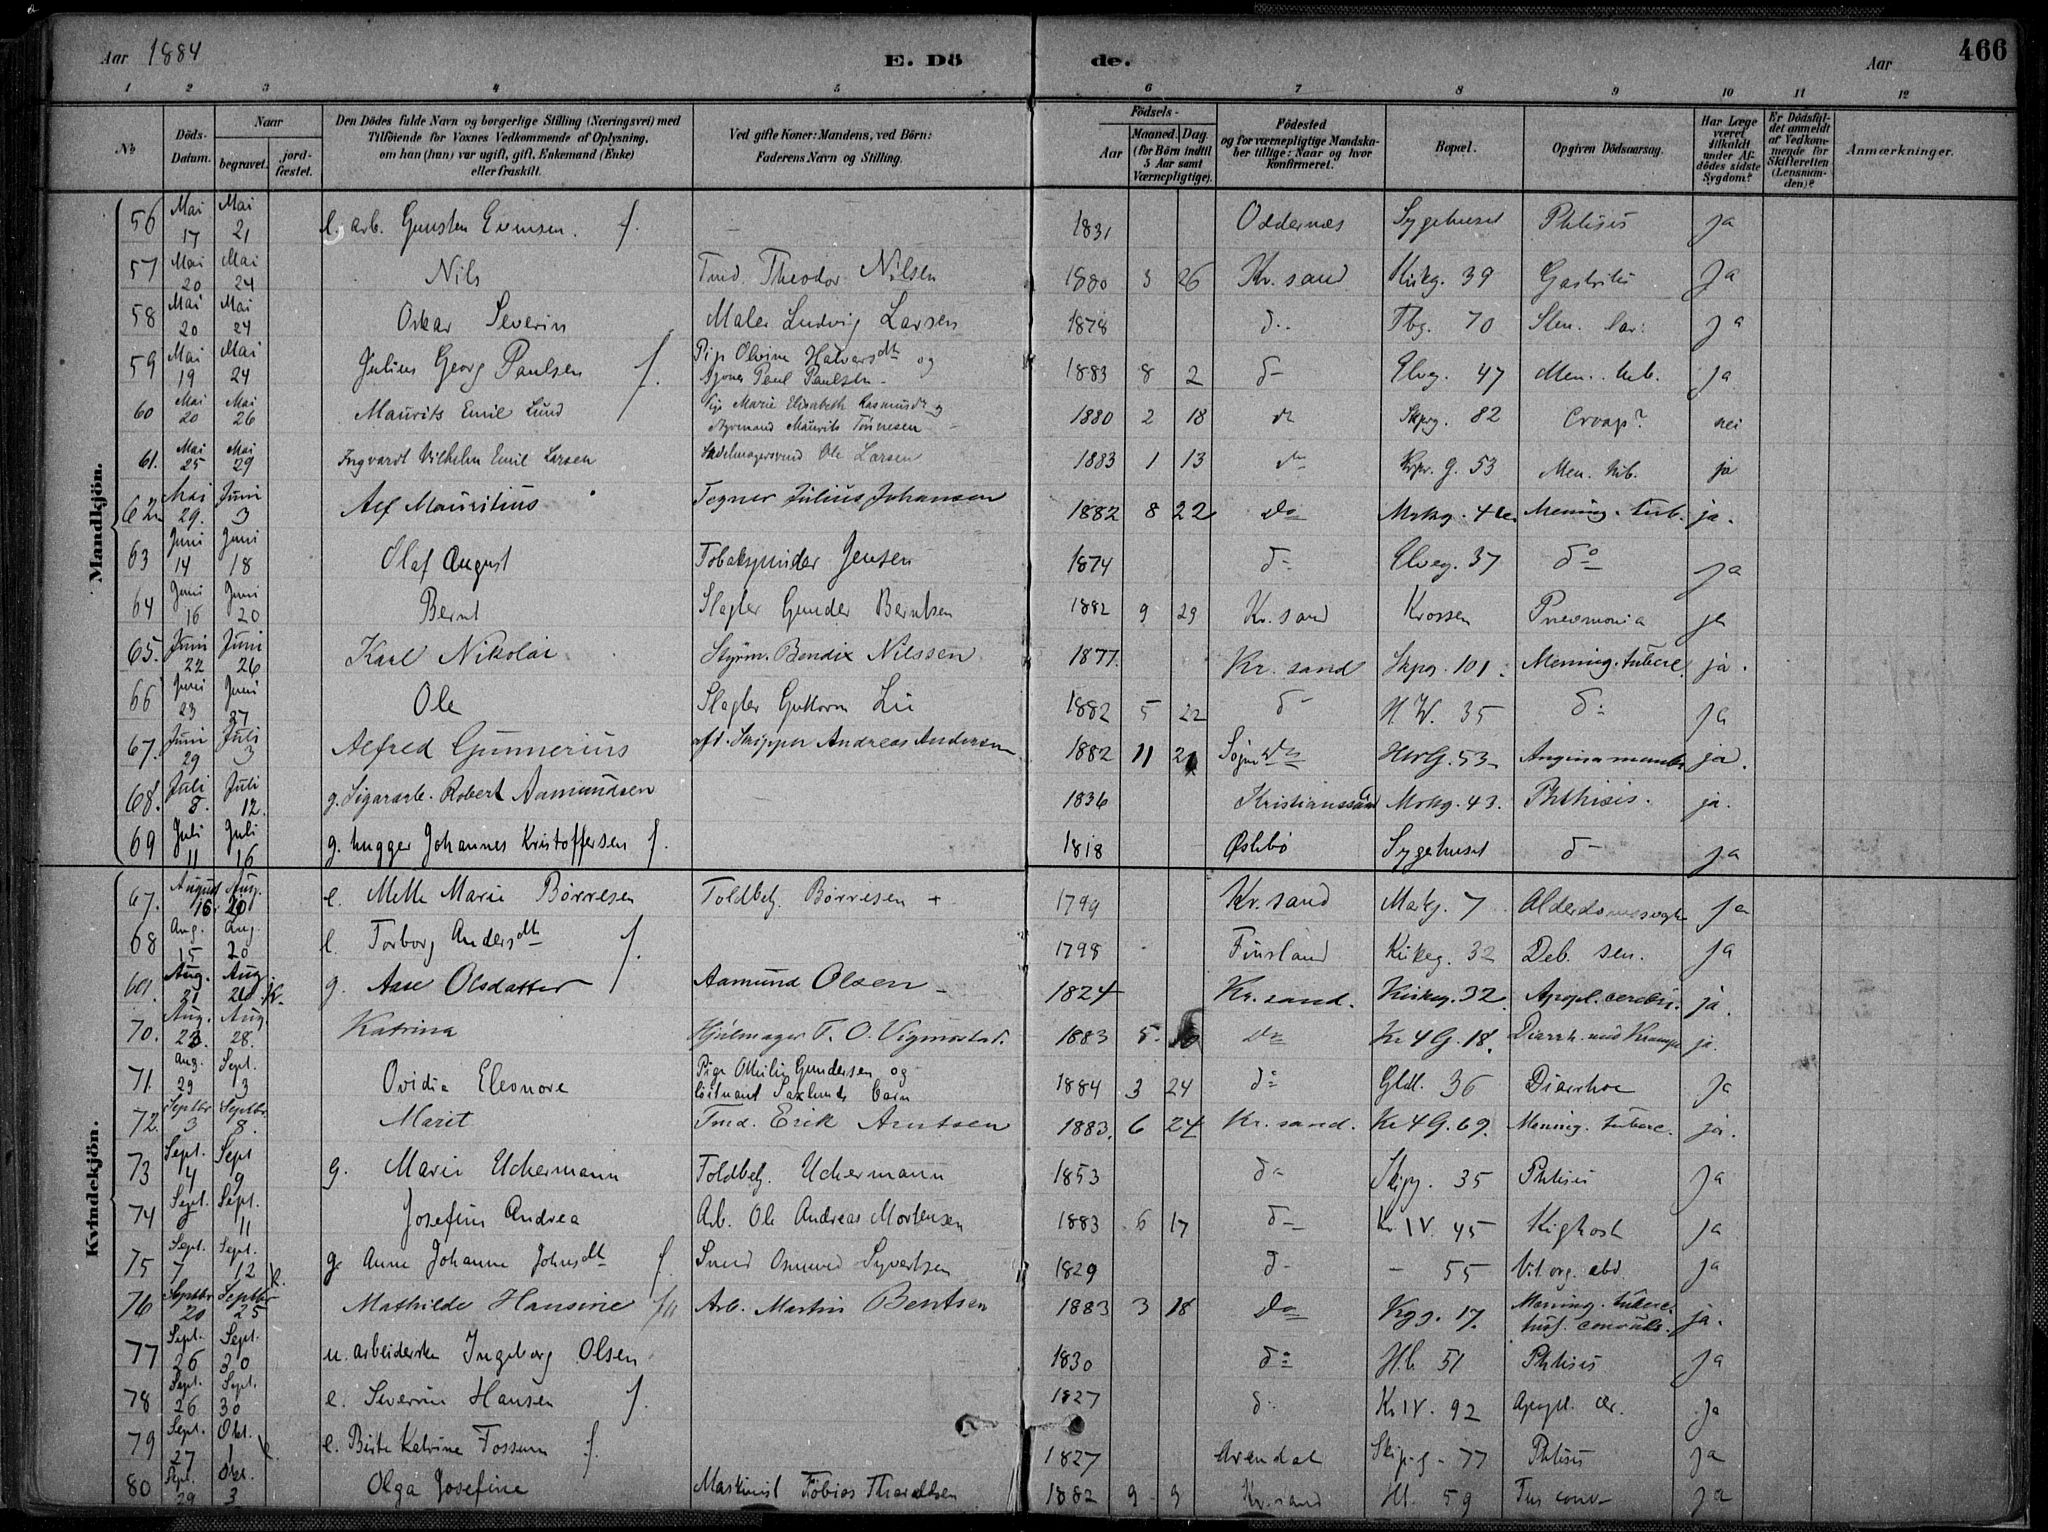 Aar 1884 E. Dö de. Aar 466
1 2 3 4 5 6 7 8 9 10 11 12
No Döds-Datum. Naar begravet. jordfæstet. Den Dödes fulde Navn og borgerlige Stilling (Næringsvei) med Tilföiende for Voxnes Vedkommende af Oplysning, om han (hun) var ugift, gift, Enkemand (Enke) eller fraskilt. Ved gifte Koner: Mandens, ved Börn: Faderens Navn og Stilling. Födsels- Aar Maaned. Dag. (for Börn indtil 5 Aar samt Værnepligtige). Födested og for værnepligtige Mandskaber tillige: Naar og hvor konfirmeret. Bopæl. Opgiven Dödsaarsag. Har Læge været tilkaldt under Afdödes sidste Sygdom? Er Dödsfaldet anmeldt af Vedkommende for Skifteretten (Lensmanden)? Anmærkninger.
Mandkjön.
56 Mai 17 Mai 21 e. arb. Gunsten Evensen. f. 1831 Oddernes Sygehuset Phtisis ja
57 Mai 20 Mai 24 Nils Tmd. Theodor Nilsen 1880 3 26 Kr. sand Kirkg. 39 Gastritis ja
58 Mai 20 Mai 24 Oskar Severin Maler Ludvig Larsen 1878 do Tbg. 70 Sten. lar: ja
59 Mai 19 Mai 24 Julius Georg Paulsen f. Pige Olvine Halvorsdtr og Paul Paulsen 1883 8 2 do Elveg. 47 Men. tub. ja
60 Mai 20 Mai 26 Maurits Emil Lund Pige Marie Elisabeth Rasmusdr og Styrmand Maurits Tönnesen 1880 2 18 do Skpg. 82 Croup? nei
61. Mai 25 Mai 29 Ingvardt Vilhelm Emil Larsen Sadelmagersvend Ole Larsen 1883 1 13 do 53 Men. tub. ja
62 Mai 29. Juni 3 Alf Mauritius Tegner Julius Johansen 1882 8 22 do Mening. tub. ja.
63 Juni 14 Juni 18 Olaf August Tobakspinder Jensen 1874 do Elveg. 37 do ja
64 Juni 16 Juni 20 Bernt Slagter Gunder Berntsen 1882 9 29 Kr. sand Krossen Pneumonia ja
65. Juni 22 Juni 26 Karl Nikolai Styrm. Bendix Nilssen 1877. Kr. sand Skpg. 101. Mening. tuberc. ja.
66 Juni 23 Juni 27 Ole Slagter Guttorm Lie 1882 5 22 do H W. 35 do ja
67. Juni 29 Juli 3 Alfred Gunnerius afd. Skipper Andreas Andersen 1882 11 Sogne HvG. 53 Angina ja.
68. Juli 8. Juli 12. g. Sigararb. Robert Aamundsen 1836 Kristianssand Mrkg. 43. Phthisis. ja.
69 Juli 11 Juli 16 g. hugger Johannes Kristoffersen f. 1818 Øslebø Sygehuset do ja
Kvindekjön.
67. August 16. Aug. 20 e. Mette Marie Børresen Toldbetj. Børresen + 1799 Kr. sand Markg. 7 Alderdomssvagh. ja
68 Aug. 15 Aug. 20 e. Torborg Andersdtr f. 1798 Finsland Kirkeg. 32 Deb. sen. ja
69. Aug. 21 Aug. g. Aase Olsdatter f. Aamund Olsen 1824 Kr. sand. Kirkeg. 32 Apopl. cerebri. ja.
70. Aug. 23. Aug. 28. Katrina Hjulmager T. O. Vigmostad. 1883 5. do Kr 4 G. 18. Diarrh. med Krampe ja.
71. Aug. 29 Sept. 3 Ovidia Eleonore Pige Otteline Gundersen og löitnant Saxlunds barn 1884 3 24 do Gldl. 36 Diarrhoe ja
72. Septbr 3 Septbr 8. Marit Tmd. Erik Arntsen 1883. 6 24 Kr. sand. Kr 4 G. 69. Mening. tuberc. ja.
73 Sept. 4 Sept 9 g. Marie Uchermann Toldbetj. Uchermann 1853 do Skipg. 35 Phtisis ja
74 Sept. 7 Sept. 11 Josefine Andrea Arb. Ole Andreas Mortensen 1883 6 17 do Kr IV. 45 Kighoste ja
75 Sept. 7 Sept. 12 g. Anne Johanne Johnsdtr f. Smed Osmund Syvertsen 1829 do - 55 Vit. org. abd. ja
76 Septbr 20 Septbr 25 Mathilde Hansine Arb. Martin Bentsen 1883 3 18 do Kgg. 17. Mening. tuberc. tusf. convuls. ja.
77 Sept. 26 Sept. 30 u. arbeiderske Ingeborg Olsen 1830 do H.l. 51 Phtisis ja
78 Sept. 26 Sept. 30 e. Severine Hansen f. 1827 do Kr IV. 92 Apopl. cer. ja
79 Sept. 27 Okt. 1 e. Birte Katrine Fossum f. 1827 Arendal Skipg. 77 Phtisis ja
80 Sept. 29 Okt. 3 Olga Josefine Maskinist Tobias Thoraldsen 1882 9 9 Kr. sand Hl. 59 Tus conv ja